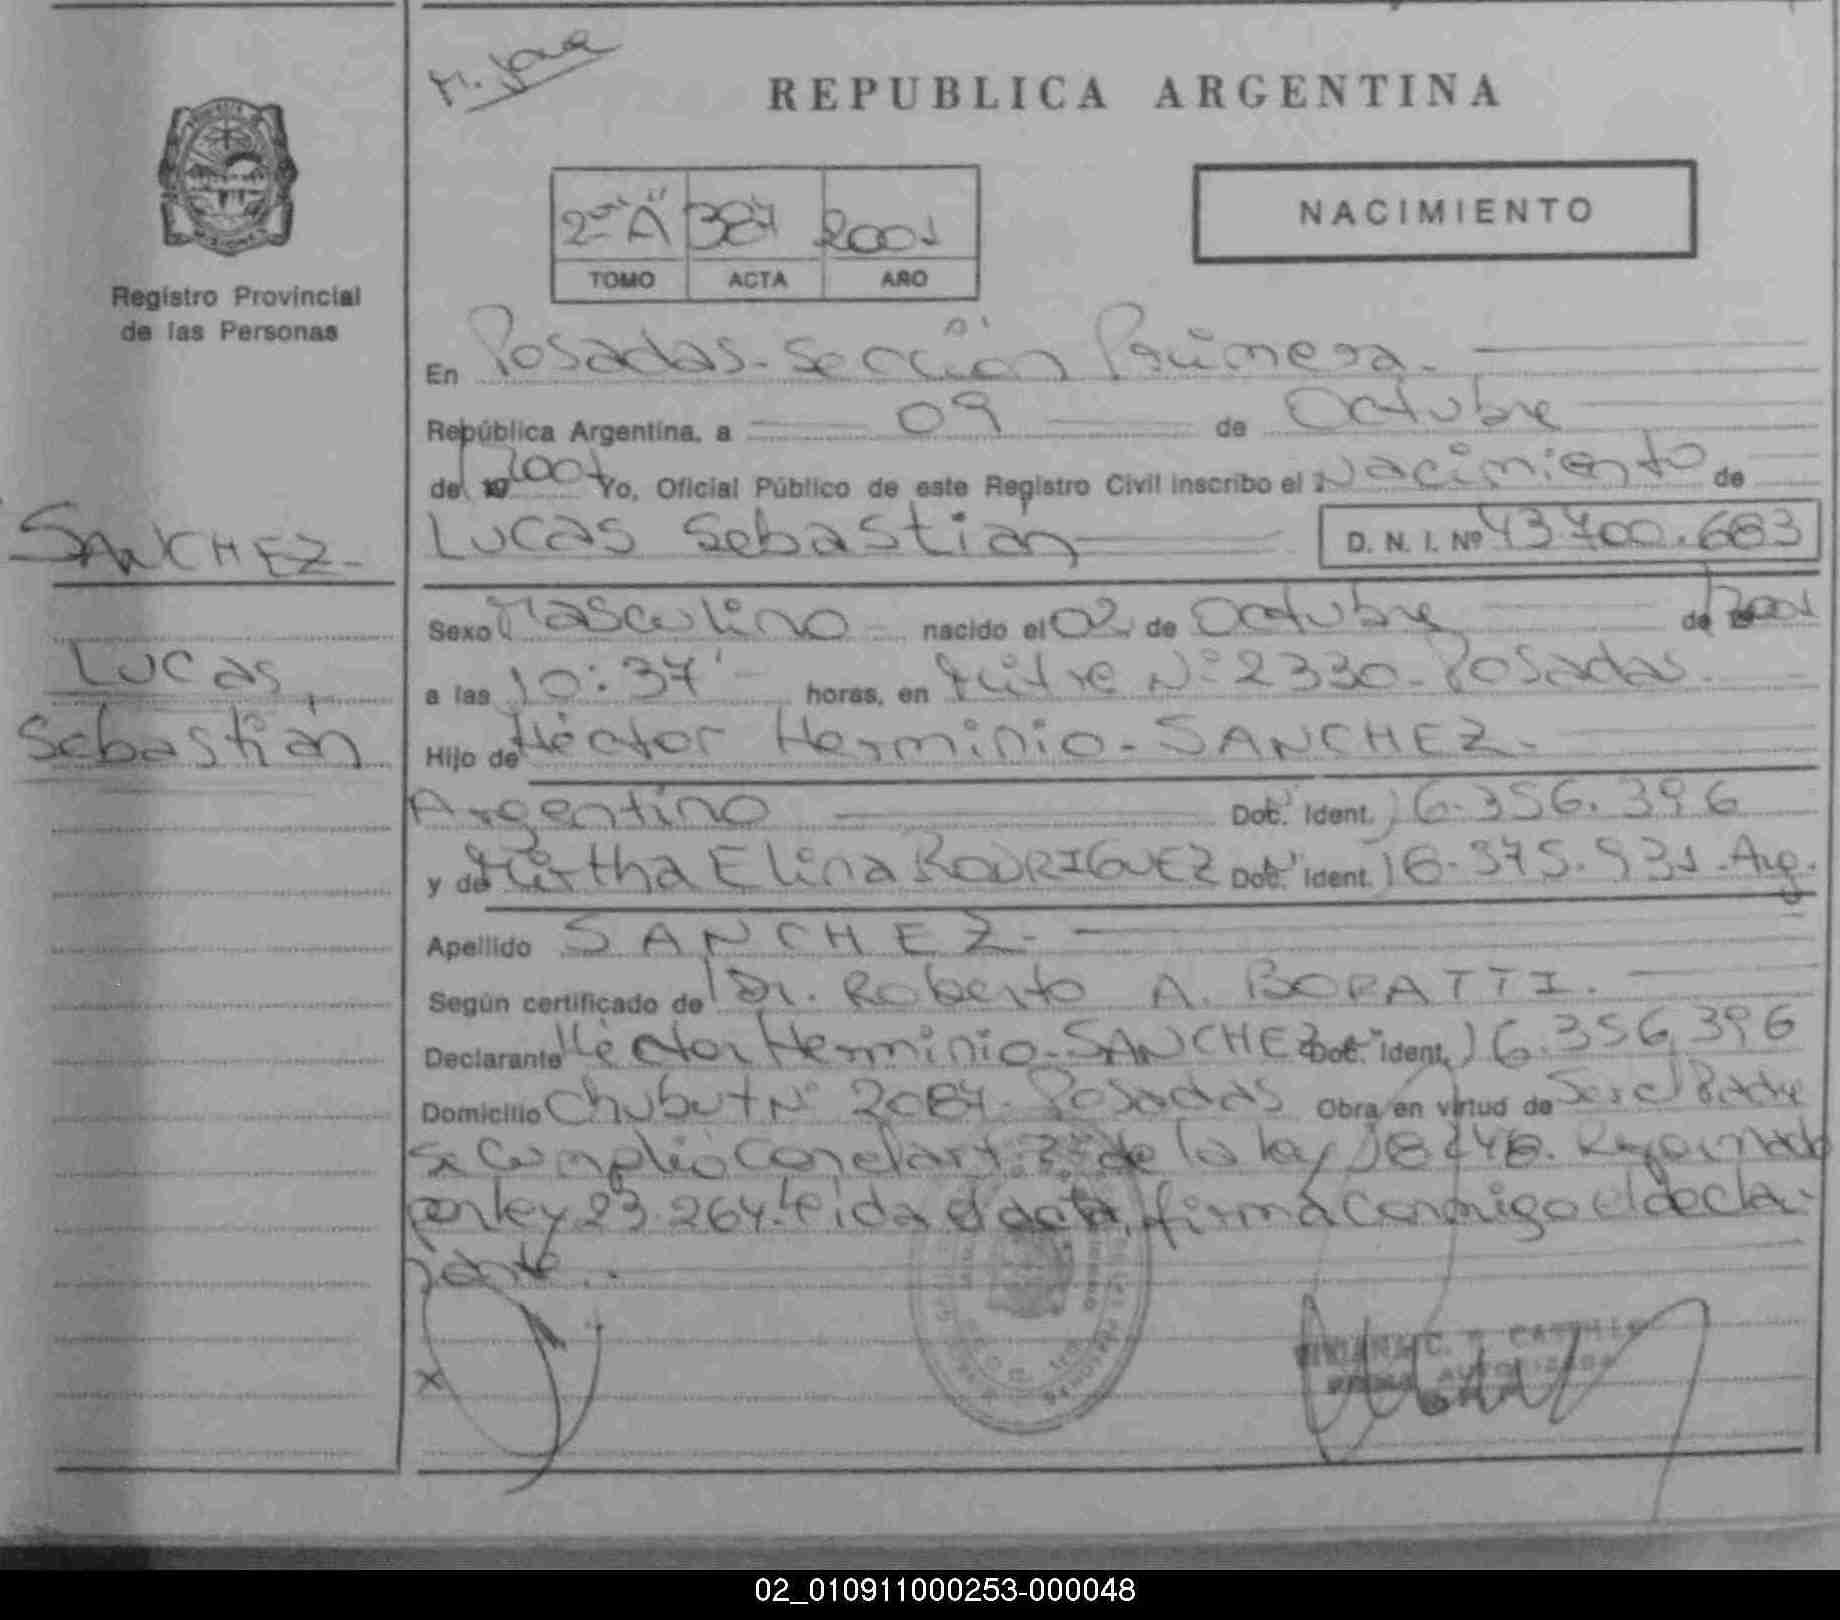 M. Jara
REPUBLICA ARGENTINA
2do "A" 387 2001
TOMO ACTA AÑO
NACIMIENTO
Registro Provincial
de las Personas
En Posadas - Sección Primera.
República Argentina, a 09 de Octubre
de 19 2001 Yo, Oficial Público de este Registro Civil inscribo el Nacimiento de
SANCHEZ- Lucas Sebastián D. N. I. Nº 43.700.683
Sexo Masculino nacido el 02 de Octubre de 2001
Lucas, a las 10:37' horas, en Mitre Nº 2330 - Posadas.
Sebastián Hijo de Héctor Herminio - SANCHEZ -
Argentino Doc. Ident. 16.356.396
y de Mirtha Elina RODRIGUEZ Doc. Ident. 16.375.531 - Arg.
Apellido SANCHEZ -
Según certificado de Dr. Roberto A. BORATTI.
Declarante Héctor Herminio - SANCHEZ Doc. Ident. 16.356.396
Domicilio Chubut Nº 2087 - Posadas Obra en virtud de Ser el Padre
Se Cumplió con el art. de la ley 18.248. Reformado
por ley 23.264. Leida el acta, firma conmigo el decla-
rante..
x
C. CASTILLO
AUTORIZADA
02_010911000253-000048